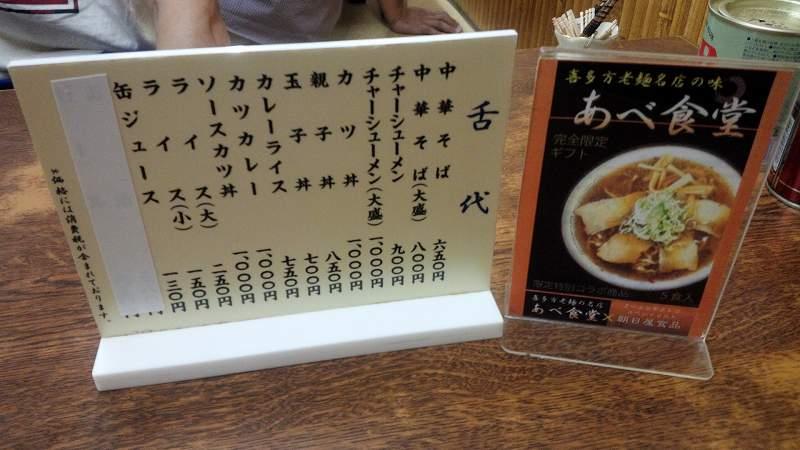 舌代
中華そば 六五〇円
中華そば(大盛) 八〇〇円
チャーシューメン 九〇〇円
チャーシューメン(大盛) 一,〇〇〇円
カツ丼 一,〇〇〇円
親子丼 八五〇円
玉子丼 七〇〇円
カレーライス 七五〇円
カツカレー 一,〇〇〇円
ソースカツ丼 一,〇〇〇円
ライス(大) 二五〇円
ライス(小) 一五〇円
缶ジュース 一三〇円
※価格には消費税が含まれております。
喜多方老麺名店の味
あべ食堂
完全限定
ギフト
限定特別コラボ商品 5食入
喜多方老麺の名店
あべ食堂×朝日屋食品